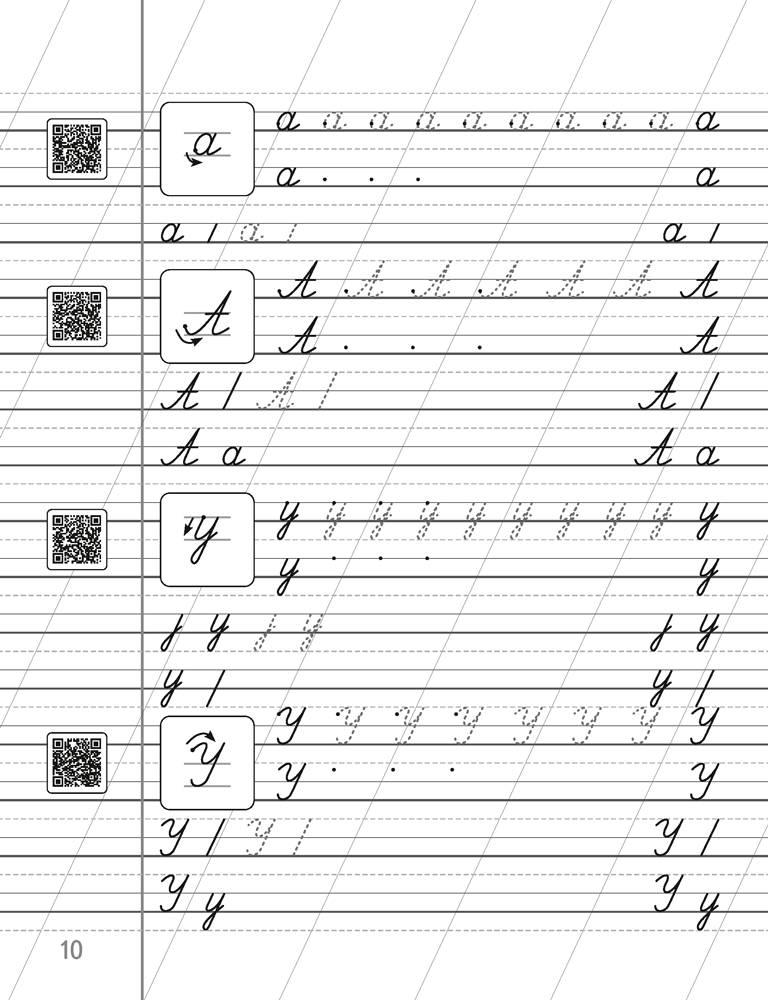 а а а а а а а а а а а
а . . . а
а / а / а /
А А А А А А А А
А . . . А
А / А / А /
А а А а
у у у у у у у у у у у
у . . . у
ȷ у ȷ у ȷ у
у / у /
У У У У У У У У У
У . . . У
У / У / У /
У у У у
10